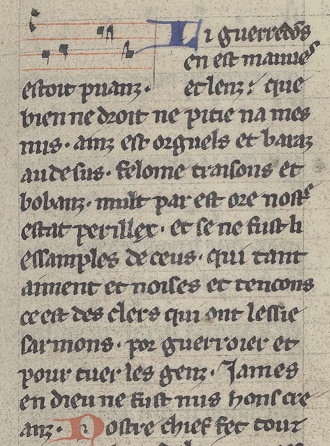 Li guerredõs
en est mauues
estoit puanz. et lenz: que
bien ne droit ne pitie na mes
nus. ainz est orguels et baraz
au desus. felonie traisons et
bobanz. mult par est ore nostre
estat perillex. et se ne fust li
essamples de ceus. qui tant
aiment et noises et tencons
ce est des clers qui ont lessie
sarmons. por guerroier et
pour tuer les genz. James
en dieu ne fust nus hons cre
anz. Nostre chief fet touz